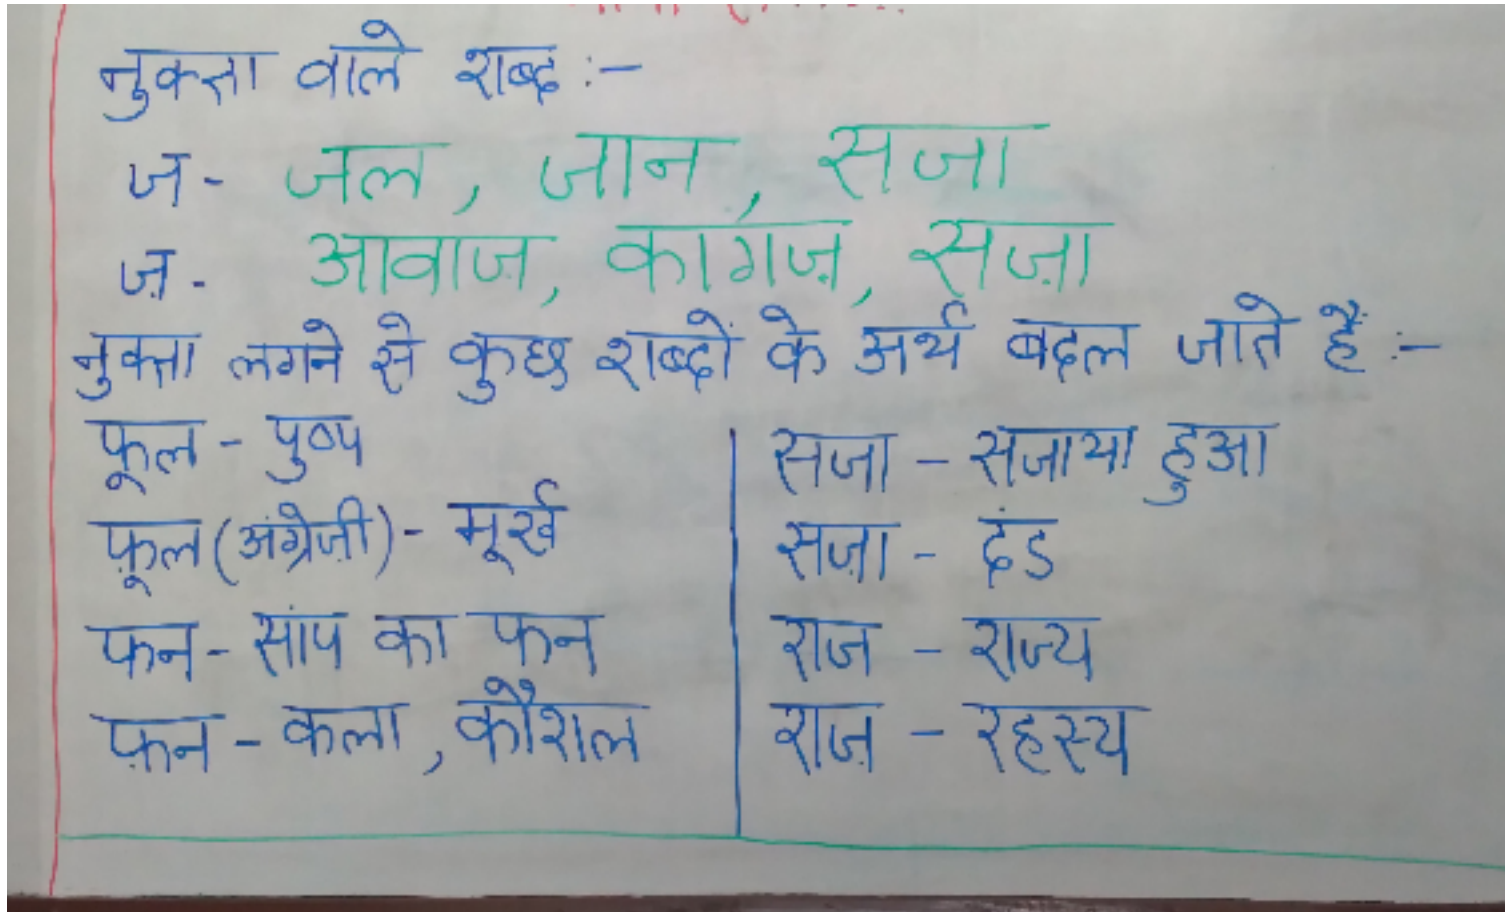 नुक्ता वाले शब्द :-
ज - जल, जान, सजा
ज़ - आवाज़, कागज़, सज़ा
नुक्ता लगने से कुछ शब्दों के अर्थ बदल जाते हैं :-
फूल - पुष्प
फ़ूल (अंग्रेज़ी) - मूर्ख
फन - सांप का फन
फ़न - कला, कौशल
सजा - सजाया हुआ
सज़ा - दंड
राज - राज्य
राज़ - रहस्य